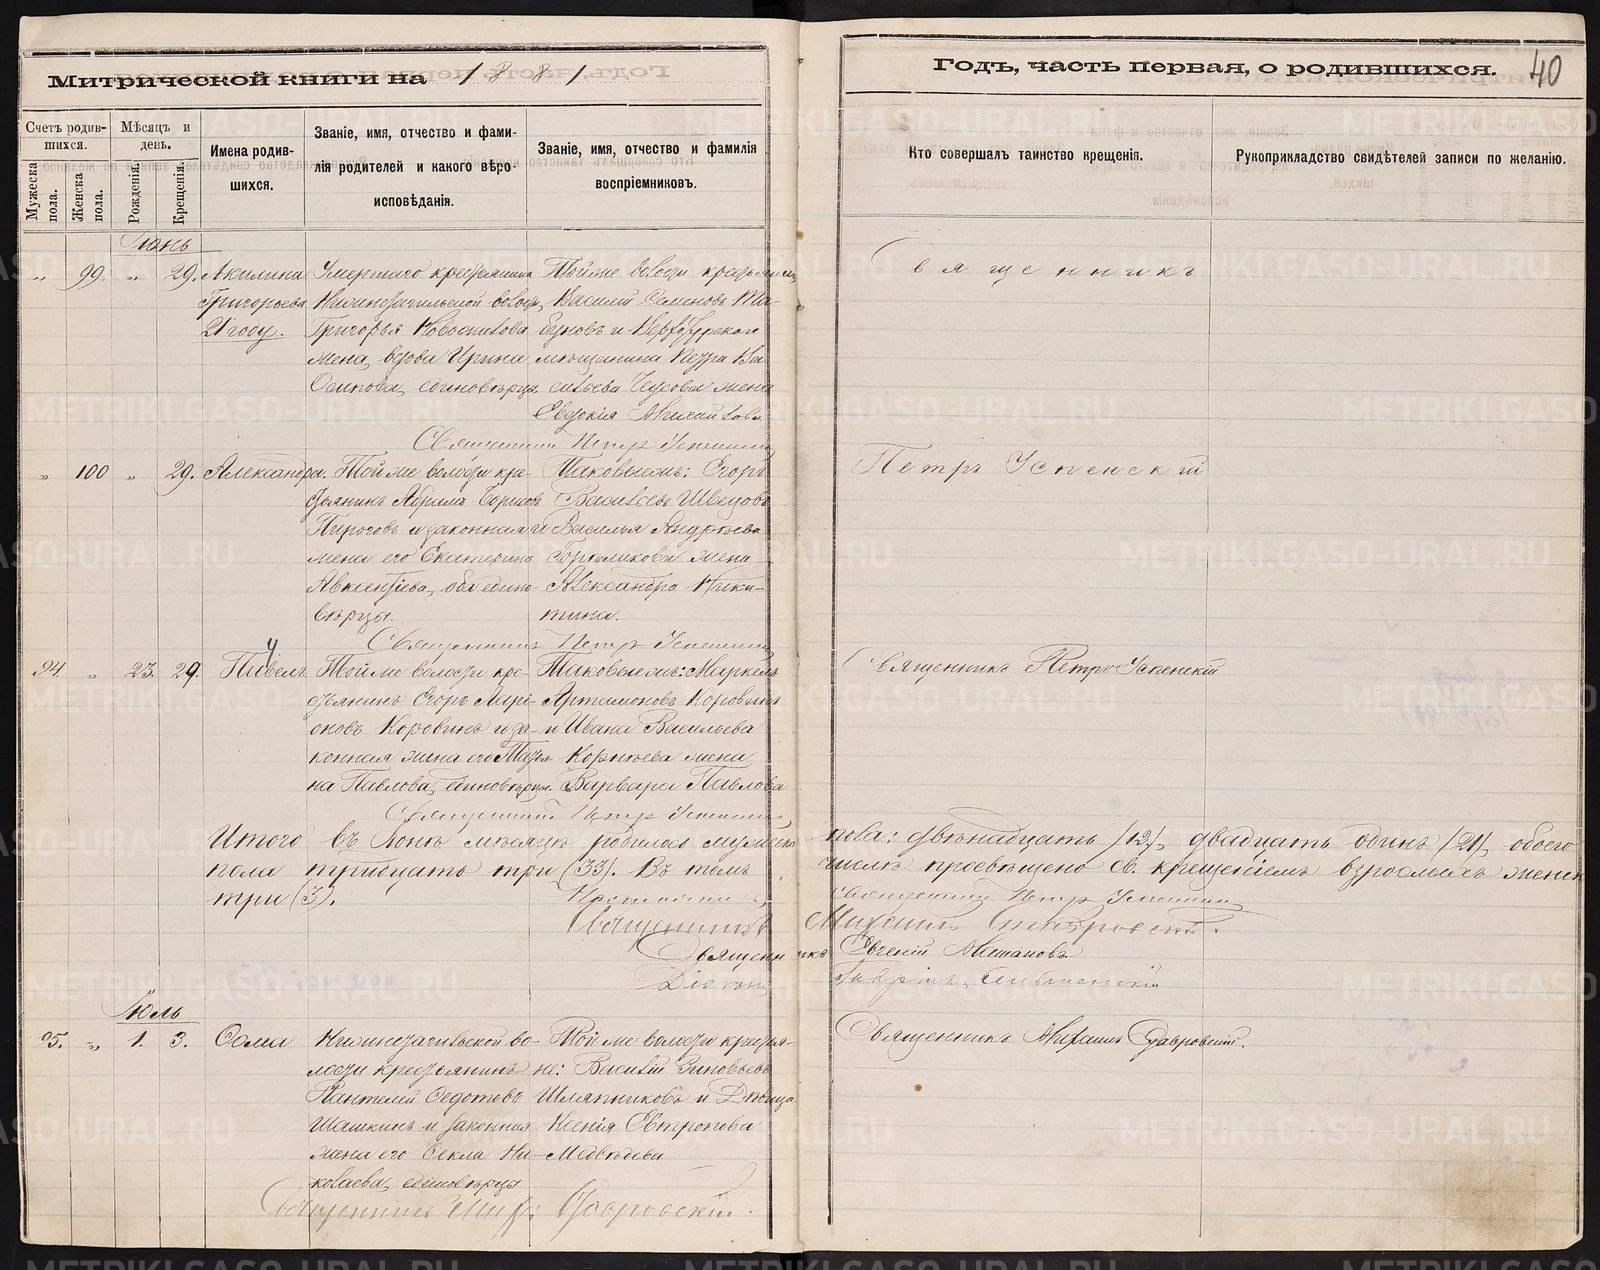 Митрическои книги на 1881
Годъ, часть первая, о родившихся.
40
Счетъ родив-
шихся.
Мужеска
пола.
Женска
пола.
Мѣсяцъ и
день.
Рожденія.
Крещенія.
Имена родив-
шихся.
Званіе, имя, отчество и фами-
лія родителей и какого вѣро-
исповѣданія.
Званіе, имя, отчество и фамилія
воспріемниковъ.
Кто совершалъ таинство крещенія.
Рукоприкладство свидѣтелей записи по желанію.
Іюнь
„ 99. „ 29. Акилина
Григорьева
21 году.
Умершаго крестьянина
Нижнетагильской волос.
Григорья Новоселова
жена, вдова Ирина
Осипова, единовѣрца
Тойже волости крестьянинъ
Василій Семеновъ Та-
буновъ и Верхотурскаго
мѣщанина Петра Ва-
сильева Чусова жена
Евдокія Михайлова
Священникъ
Священникъ Петръ Успенскій
„ 100 „ 29. Александра.
Тойже волости кре-
стьянинъ Абрамъ Борисовъ
Пироговъ и законная
жена его Екатерина
Авксентіева, оба едино-
вѣрцы.
Таковыежъ: Егоръ
Васильевъ Швецовъ
и Василья Андреева
жена
Александра Ники-
тина.
Петръ Успенскій
Священникъ Петръ Успенскій
94. „ 23. 29. Павелъ.
Тойже волости кре-
стьянинъ Егоръ Лари-
оновъ Коровинъ и за-
конная жена его Татья-
на Павлова, единовѣрцы.
Таковыежъ: Маркелъ
Артамоновъ Коровинъ
и Ивана Васильева
Корнѣева жена
Варвара Павлова
Священникъ Петръ Успенскій
Священникъ Петръ Успенскій
Итого въ Іюнѣ мѣсяцѣ родилось мужеска
пола: двѣнадцать /12/, двадцать одинъ /21/, обоего
пола тридцать три (33). Въ томъ
числѣ просвѣщено св. крещеніемъ взрослыхъ женск
три (3).
Священникъ Петръ Успенскій
Священникъ Михаилъ Ставровскій.
Священникъ Евгеній
Діаконъ
Іюль
95. „ 1. 3. Ѳома
Нижнетагильской во-
лости крестьянинъ
Пантелей Ѳедотовъ
Шашкинъ и законная
жена его Ѳекла Ни-
колаева, единовѣрцы
Тойже волости крестья-
не: Василій Зиновьевъ
Шляпниковъ и Дѣвица
Ксенія Евтропова
Медвѣдева
Священникъ Михаилъ Ставровскій.
Священникъ Михаилъ Ставровскій.
METRIKI.GASO-URAL.RU